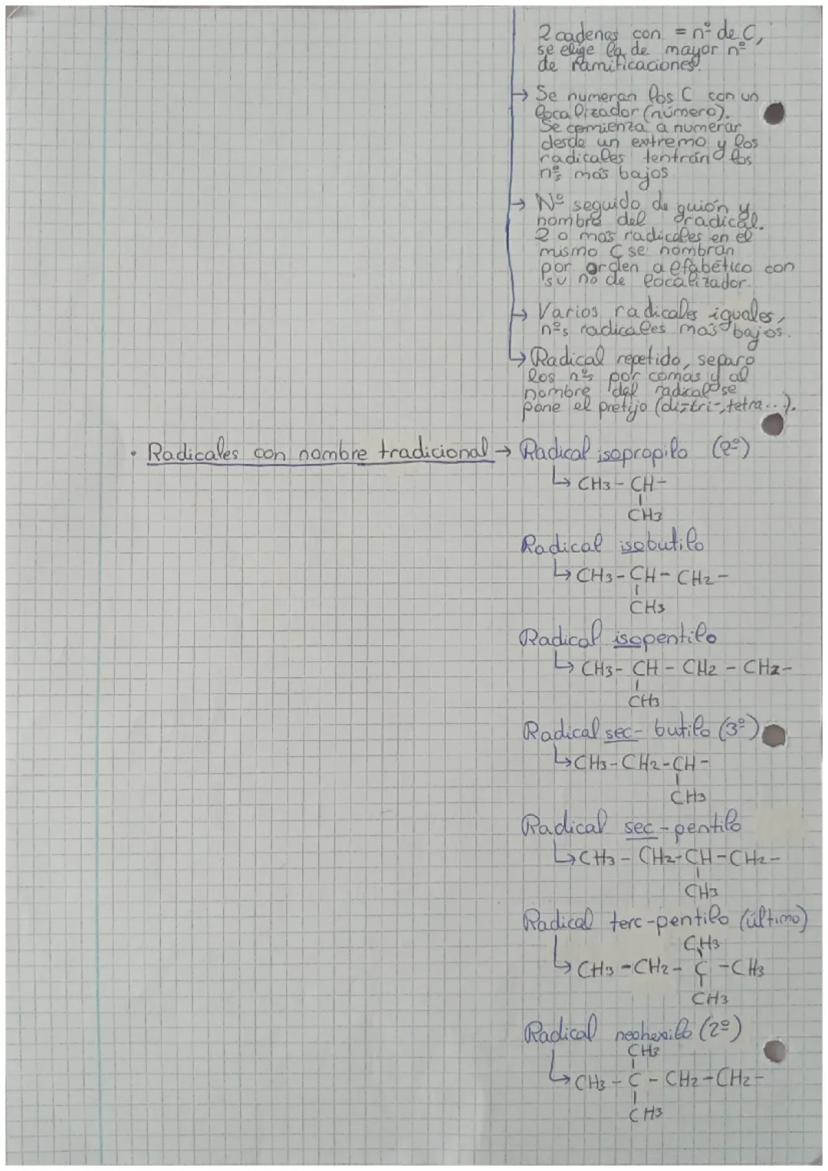 2 cadenas con = nº de C,
se elige la de mayor nº
de ramificaciones.
→ Se numeran los C con un
localizador (número).
Se comienza a numerar
desde un extremo y los
radicales tentrán los
nºs más bajos
→ Nº seguido de guión y
nombre del radical.
2 o más radicales en el
mismo C se nombran
por orden alfabético con
su nº de localizador.
→ Varios radicales iguales,
nºs radicales más bajos.
↳ Radical repetido, separo
los nºs por comas y al
nombre del radical se
pone el prefijo (di-tri-, tetra...).
· Radicales con nombre tradicional → Radical isopropilo (2º)
↳ CH3 - CH-
CH3
Radical isobutilo
↳ CH3 - CH - CH2 -
CH3
Radical isopentilo
↳ CH3 - CH - CH2 - CH2 -
CH3
Radical sec- butilo (3º)
↳ CH3 - CH2 - CH -
CH3
Radical sec-pentilo
↳ CH3 - CH2 - CH - CH2 -
CH3
Radical terc-pentilo (último)
CH3
↳ CH3 - CH2 - C - CH3
CH3
Radical neohexilo (2º)
CH3
↳ CH3 - C - CH2 - CH2 -
CH3